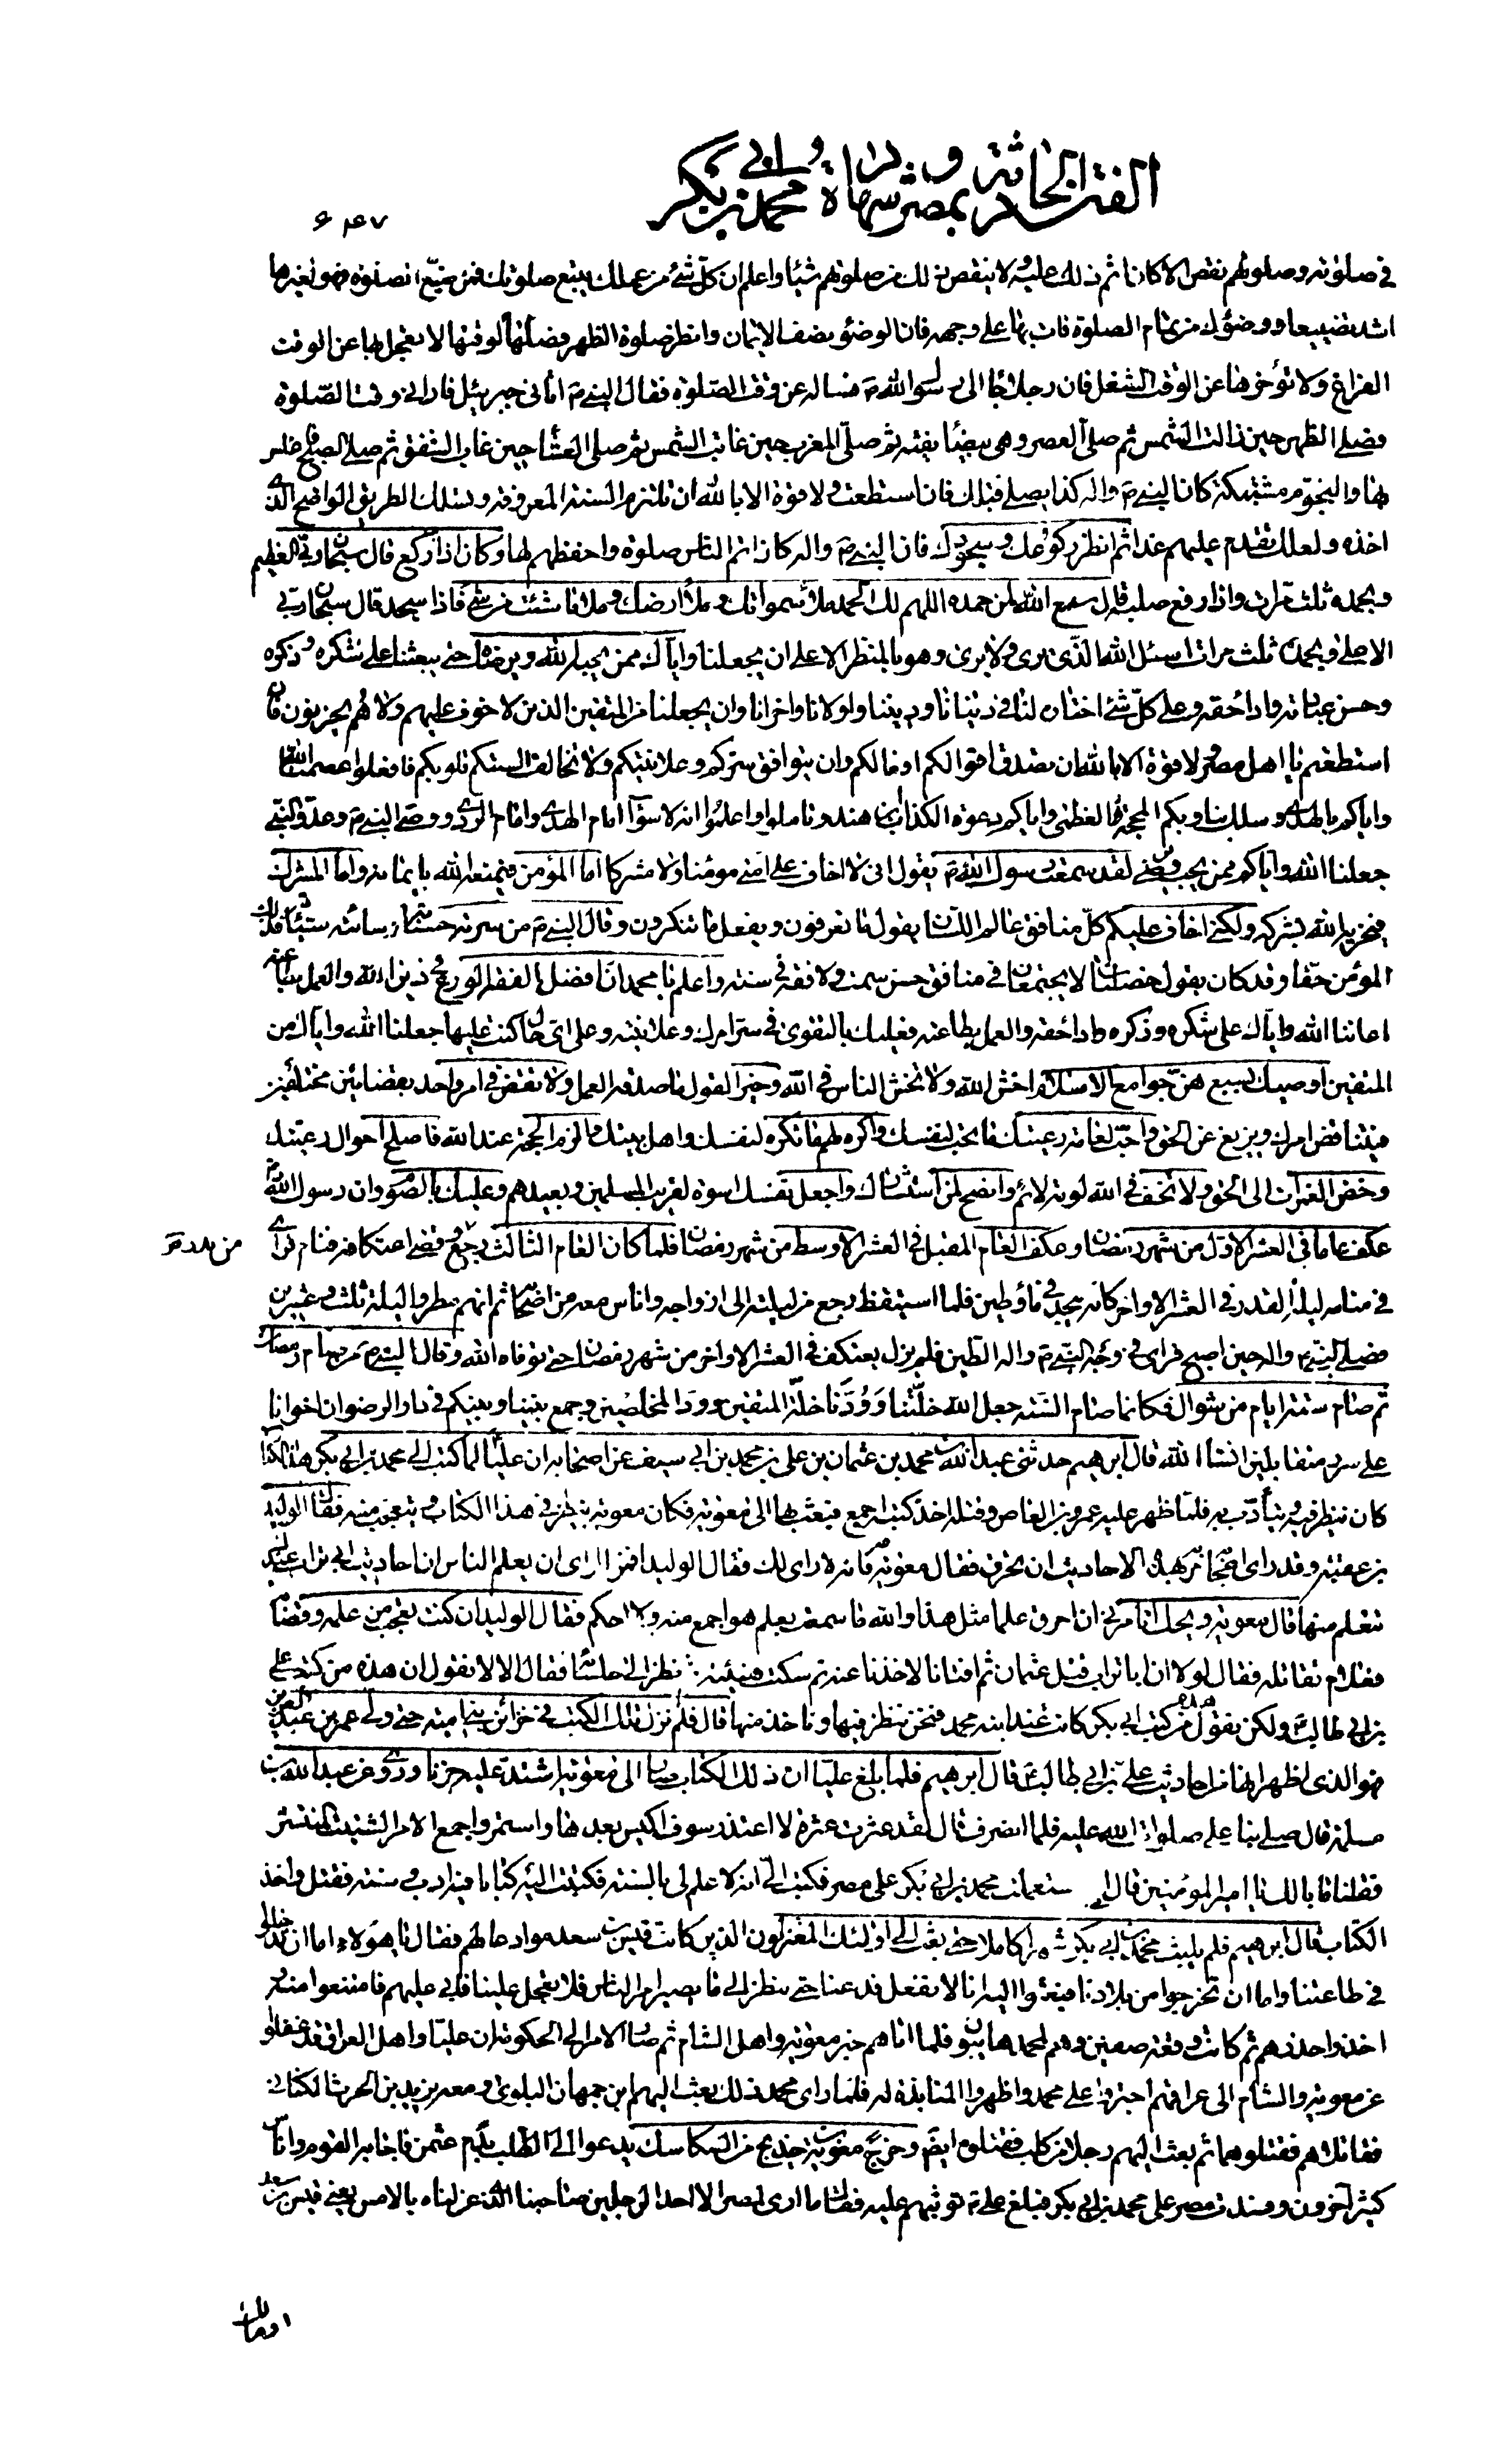 الفتن الحادثة بمصر وشهادة محمد بن أبي بكر
۶۴۷
في صلوته وصلوتهم نقص الا كان اثم ذلك عليه ولا ينقص ذلك من صلوتهم شيئا واعلم ان كل شئ من عملك يتبع صلوتك فمن ضيع الصلوة فهو لغيرها
اشد تضييعا ووضوئك من تمام الصلوة فات بها على وجهه فان الوضوء نصف الايمان وانظر صلوة الظهر فصلها لوقتها لا تعجل بها عن الوقت
الفراغ ولا تؤخرها عن الوقت لشغل فان رجلا جاء الى رسول الله ص فساله عن وقت الصلوة فقال النبي ص اتاني جبرئيل فاراني وقت الصلوة
فصلى الظهر حين زالت الشمس ثم صلى العصر وهي بيضاء نقية ثم صلى المغرب حين غابت الشمس ثم صلى العشاء حين غاب الشفق ثم صلى الصبح فاغلس
بها والنجوم مشتبكة كان النبي ص واله كذا يصلي قبلك فان استطعت ولا قوة الا بالله ان تلتزم السنة المعروفة وتسلك الطريق الواضح الذي
اخذه ولعلك تقدم عليهم غدا ثم انظر ركوعك وسجودك فان النبي ص واله كان اتم الناس صلوة واحفظهم لها وكان اذا ركع قال سبحان ربي العظيم
وبحمده ثلث مرات واذا رفع صلبه قال سمع الله لمن حمده اللهم لك الحمد ملأ سمواتك وملأ ارضك وملأ ما شئت من شئ فاذا سجد قال سبحان ربي
الاعلى وبحمده ثلث مرات اسئل الله الذي يرى ولا يرى وهو بالمنظر الاعلى ان يجعلنا واياك ممن يحبه الله ويرضاه حتى يبعثنا على شكره وذكره
وحسن عبادته واداء حقه وعلى كل شئ اختاره لنا في دنيانا وديننا واولانا واخرانا وان يجعلنا من المتقين الذين لا خوف عليهم ولا هم يحزنون فان
استطعتم يا اهل مصر ولا قوة الا بالله ان تصدق اقوالكم افعالكم وان يتوافق سركم وعلانيتكم ولا تخالف السنتكم قلوبكم فافعلوا عصمنا الله
واياكم بالهدى وسلك بنا وبكم المحجة العظمى واياكم دعوة الكذاب بن هند وتاملوا واعلموا انه لا سواء امام الهدى وامام الردى ووصي النبي ص وعدو النبي
جعلنا الله واياكم ممن يحب ويرضى لقد سمعت رسول الله ص يقول اني لا اخاف على امتي مؤمنا ولا مشركا اما المؤمن فيمنعه الله بايمانه واما المشرك
فيخزيه الله بشركه ولكني اخاف عليكم كل منافق عالم اللسان يقول ما تعرفون ويفعل ما تنكرون وقال النبي ص من سرته حسناته وسائته سيئاته فذلك
المؤمن حقا وقد كان يقول خصلتان لا يجتمعان في منافق حسن سمت ولا فقه في سنة واعلم يا محمد ان افضل الفقه الورع في دين الله والعمل بطاعته
اعاننا الله واياك على شكره وذكره واداء حقه والعمل بطاعته فعليك بالتقوى في سر امرك وعلانيته وعلى اي حال كنت عليها جعلنا الله واياك من
المتقين اوصيك بسبع هن جوامع الاسلام اخش الله ولا تخش الناس في الله وخير القول ما صدقه العمل ولا تقض في امر واحد بقضائين مختلفين
فيتناقض امرك وتزيغ عن الحق واحب لعامة رعيتك ما تحب لنفسك واكره لهم ما تكره لنفسك واهل بيتك والزم الحجة عند الله فاصلح احوال رعيتك
وخض الغمرات الى الحق ولا تخف في الله لومة لائم وانصح لمن استشارك واجعل نفسك اسوة لقريب المسلمين وبعيدهم وعليك بالصوم وان رسول الله ص
عكف عاما في العشر الاول من شهر رمضان وعكف العام المقبل في العشر الاوسط من شهر رمضان فلما كان العام الثالث رجع وقضى اعتكافه فنام فراى
في منامه ليلة القدر في العشر الاواخر كانه يسجد في ماء وطين فلما استيقظ رجع من ليلته الى ازواجه واناس معه من اصحابه ثم انهم مطروا ليلة ثلث وعشرين
فصلى النبي ص واله حين اصبح فراى في وجه النبي ص واله الطين فلم يزل يعتكف في العشر الاواخر من شهر رمضان حتى توفاه الله وقال النبي ص من صام رمضان
ثم صام ستة ايام من شوال فكانما صام السنة جعل الله خلتنا وودنا خلة المتقين وود المخلصين وجمع بيننا وبينكم في دار الرضوان اخوانا
على سرر متقابلين انشاء الله قال ابرهيم حدثني عبد الله بن محمد بن عثمان بن علي بن محمد بن ابي سيف عن اصحابه ان عليا لما كتب الى محمد بن ابي بكر هذا الكتاب
كان ينظر فيه ويتأدب به فلما ظهر عليه عمرو بن العاص وقتله اخذ كتبه اجمع فبعث بها الى معوية فكان معوية ينظر في هذا الكتاب ويتعجب منه فقال الوليد
بن عقبة وقد راى اعجابه به مر بهذه الاحاديث ان تحرق فقال معوية مه فانه لا راى لك فقال الوليد افمن الراى ان يعلم الناس ان احاديث ابي تراب عندك
تتعلم منها قال معوية ويحك اتامرني ان احرق علما مثل هذا والله ما سمعت بعلم هو اجمع منه ولا احكم فقال الوليد ان كنت تعجب من علمه وقضائه
فعلام تقاتله فقال لولا ان ابا تراب قتل عثمان ثم افتانا لاخذنا عنه ثم سكت هنيئة ثم نظر الى جلسائه فقال الا لا نقول ان هذه من كتب علي
بن ابي طالب ع ولكن نقول هذه من كتب ابي بكر كانت عند ابنه محمد فنحن ننظر فيها وناخذ منها قال فلم تزل تلك الكتب في خزائن بني امية حتى ولى عمر بن عبد العزيز
فهو الذي اظهر انها من احاديث علي بن ابي طالب ع قال ابرهيم فلما بلغ عليا ان ذلك الكتاب صار الى معوية اشتد عليه حزنا وروى عن عبد الله بن
سلمة قال صلى بنا علي صلوات الله عليه فلما انصرف قال لقد عثرت عثرة لا اعتذر سوف اكيس بعدها واستمر واجمع الامر الشتيت المنتشر
فقلنا ما بالك يا امير المؤمنين قال اني استعملت محمد بن ابي بكر على مصر فكتب الي انه لا علم لي بالسنة فكتبت اليه كتابا فيه ادب وسنة فقتل واخذ
الكتاب قال ابرهيم فلم يلبث محمد بن ابي بكر شهرا كاملا حتى بعث الى اولئك المعتزلون الذين كانت قيس بن سعد موادعا لهم فقال يا هؤلاء اما ان تدخلوا
في طاعتنا واما ان تخرجوا من بلادنا فبعثوا اليه انا لا نفعل فدعنا حتى ننظر الى ما يصير امر الناس فلا تعجل علينا فابى عليهم فامتنعوا منه و
اخذوا حذرهم ثم كانت وقعة صفين وهم لمحمد هائبون فلما اتاهم خبر معوية واهل الشام ثم صار الامر الى الحكومة وان عليا واهل العراق قد غفلوا
عن معوية والشام الى عراقهم اجترؤا على محمد واظهروا المنابذة له فلما راى محمد ذلك بعث اليهم ابن جمهان البلوى ومعه يزيد بن الحرث الكناني
فقاتلاهم فقتلوهما ثم بعث اليهم رجلا من كلب فقتلوه ايضا وخرج معوية بن خديج من السكاسك يدعو الى الطلب بدم عثمن فاجابه القوم واناس
كثير آخرون وفسدت مصر على محمد بن ابي بكر فبلغ عليا ع توثبهم عليه فقال ما ارى لمصر الا احد الرجلين صاحبنا الذي عزلناه بالامس يعني قيس بن سعد
او مالك